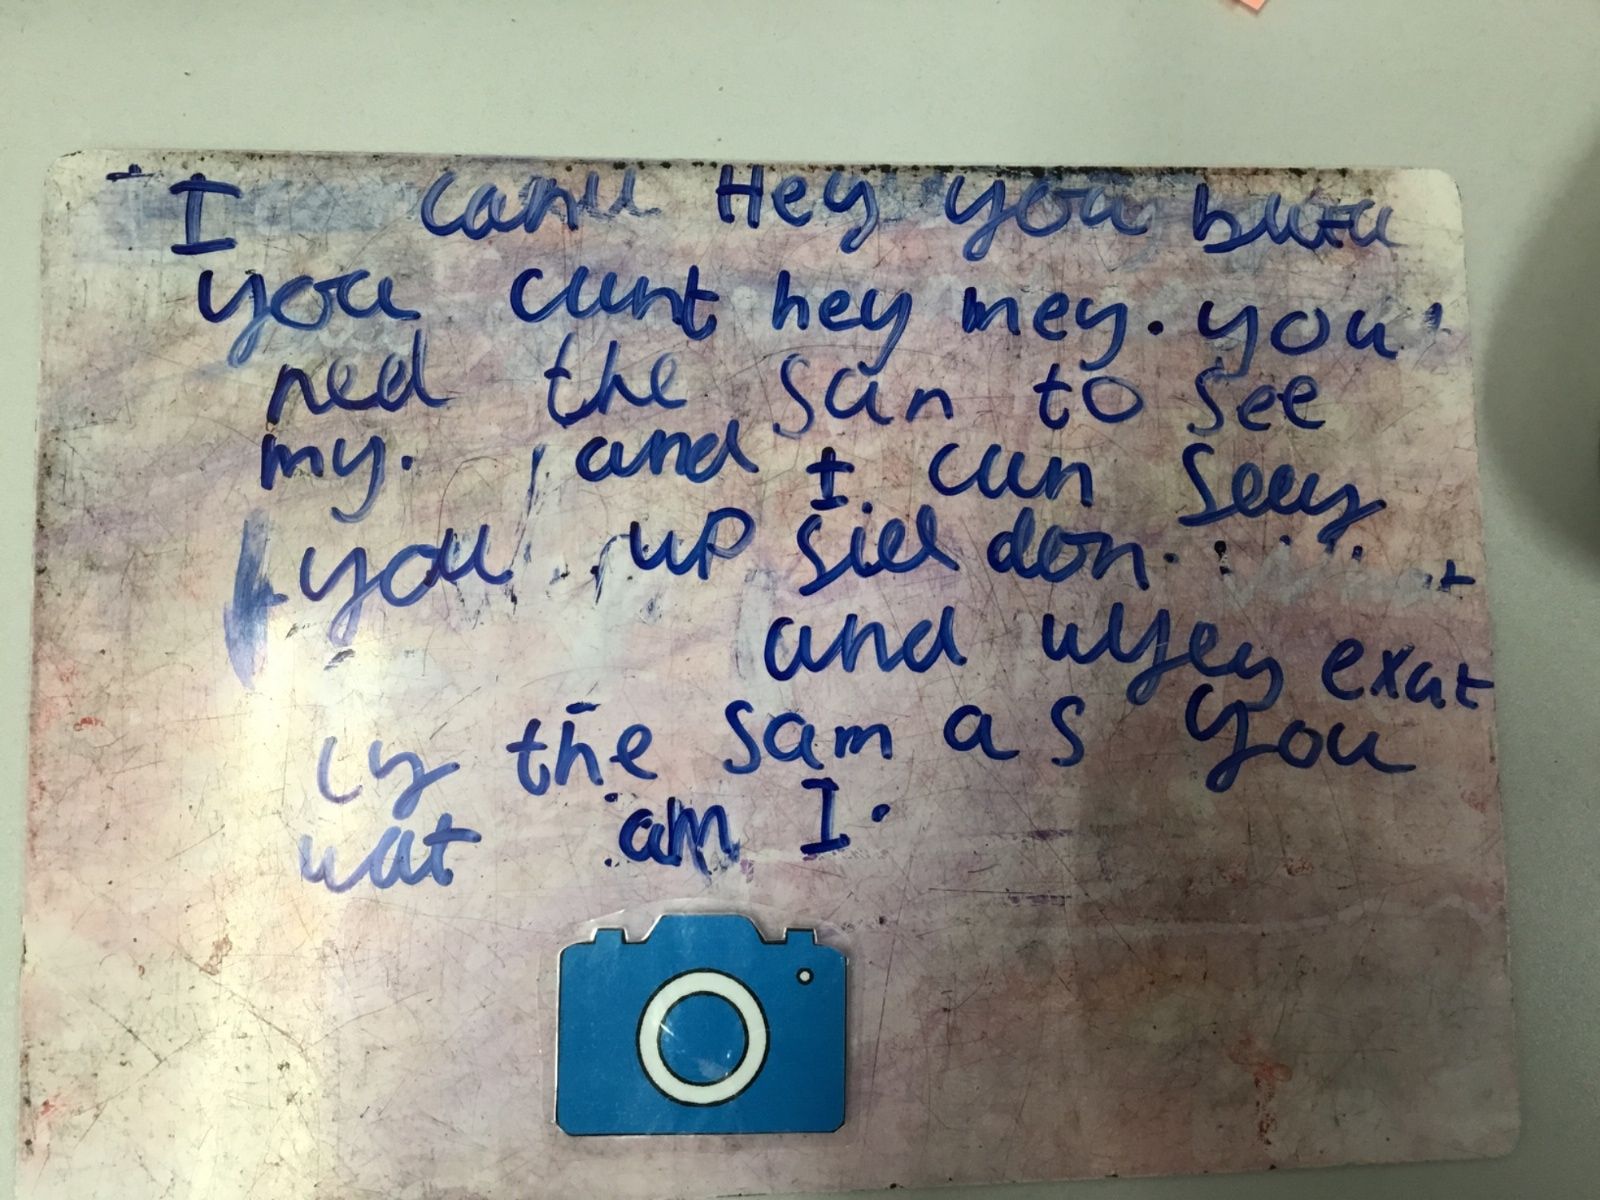 I can Hey you but
you cant hey mey. you
ned the san to see
my. and I can seey
you up sied don.
and uyey exat
ly the sam as you
wat am I.